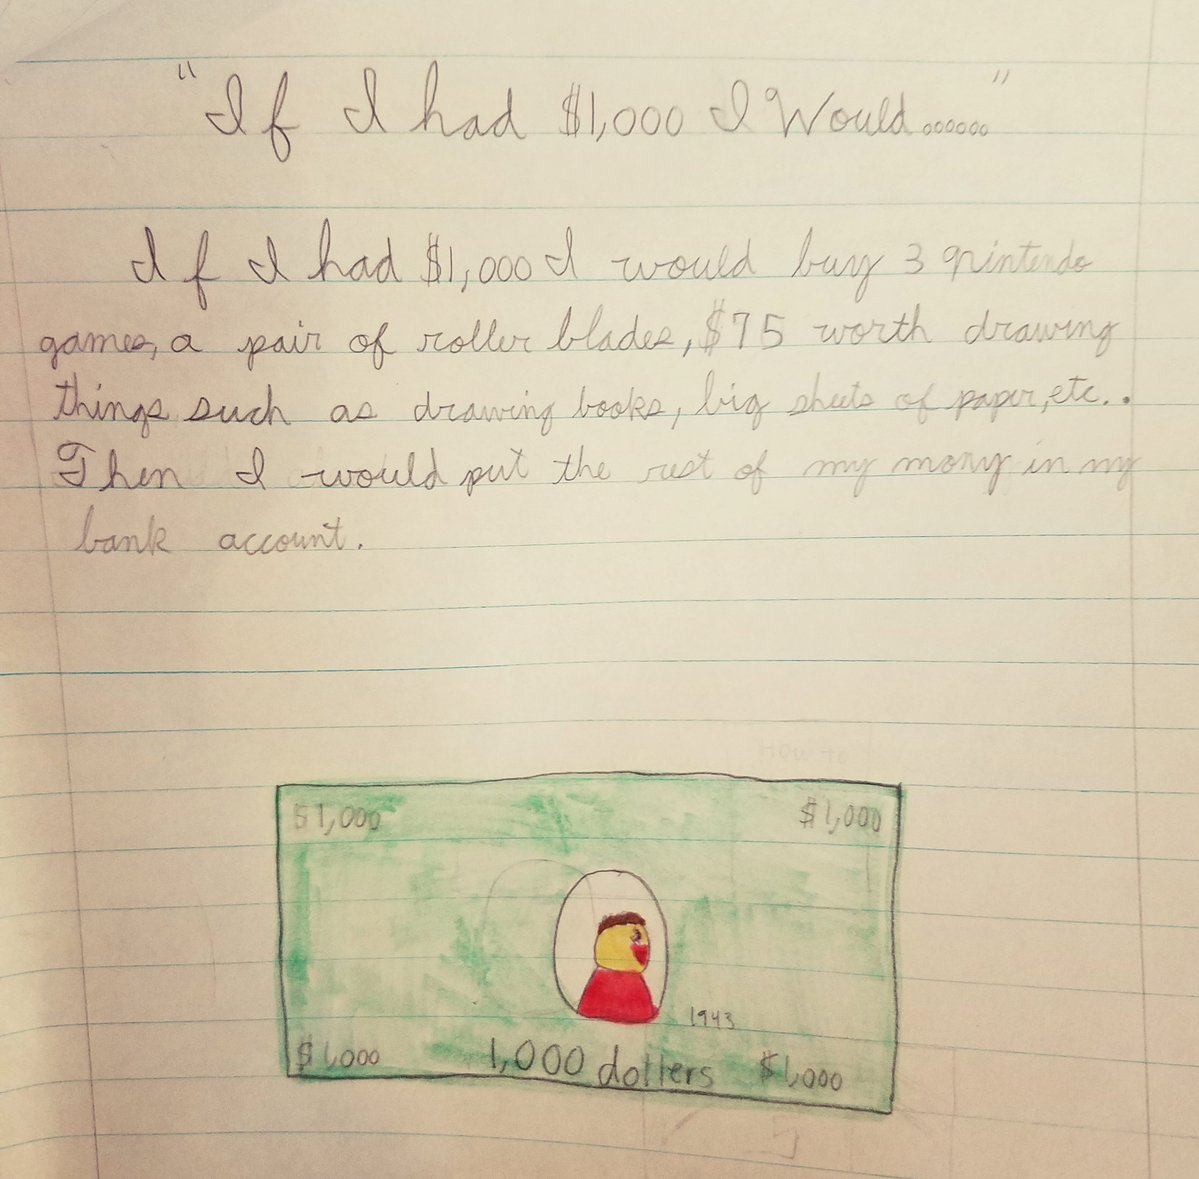 "If I had $1,000 I Would......."
If I had $1,000 I would buy 3 nintendo
games, a pair of roller blades, $75 worth drawing
things such as drawing books, big sheets of paper, etc..
Then I would put the rest of my mony in my
bank account.
How to
$1,000 $1,000
1943
$1,000 1,000 dollers $1,000